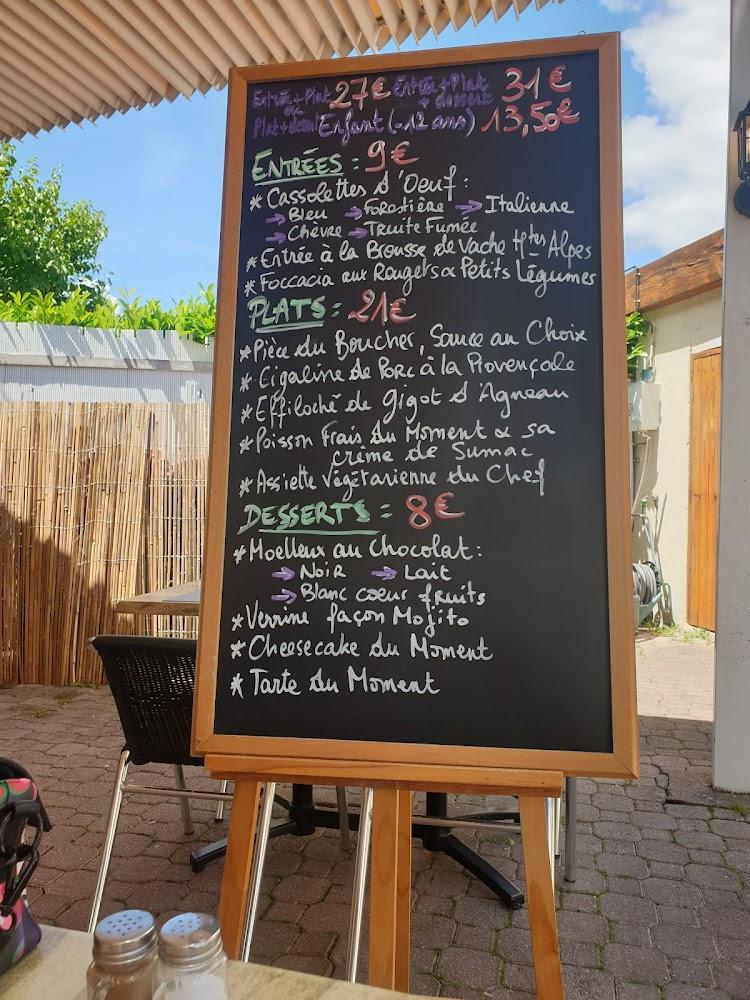 Entrée + Plat 27€ Entrée + Plat 31€
ou + dessert
Plat + dessert Enfant (-12 ans) 13,50€
ENTRÉES : 9€
* Cassolettes d'Oeuf :
→ Bleu → Forestière → Italienne
→ Chèvre → Truite Fumée
* Entrée à la Brousse de Vache Htes Alpes
* Foccacia aux Rougets & Petits Légumes
PLATS : 21€
* Pièce du Boucher, Sauce au Choix
* Cigaline de Porc à la Provençale
* Effiloché de Gigot d'Agneau
* Poisson Frais du Moment & sa
crème de Sumac
* Assiette Végétarienne du Chef
DESSERTS : 8€
* Moelleux au Chocolat :
→ Noir → Lait
→ Blanc coeur fruits
* Verrine façon Mojito
* Cheesecake du Moment
* Tarte du Moment